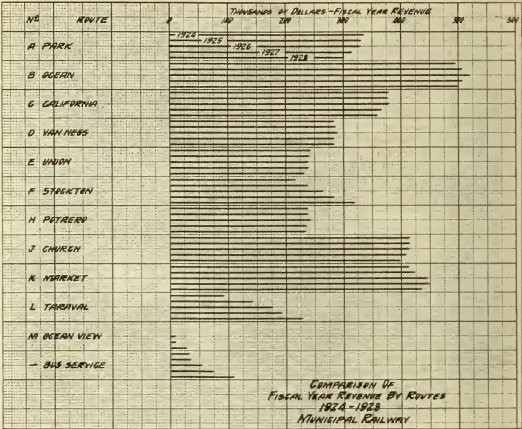 THOUSANDS OF DOLLARS - FISCAL YEAR REVENUE
Nº ROUTE 0 100 200 300 400 500 600
A PARK
1924
1925
1926
1927
1928
B OCEAN
C CALIFORNIA
D VAN NESS
E UNION
F STOCKTON
H POTRERO
J CHURCH
K MARKET
L TARAVAL
M OCEAN VIEW
— BUS SERVICE
COMPARISON OF
FISCAL YEAR REVENUE BY ROUTES
1924-1928
MUNICIPAL RAILWAY